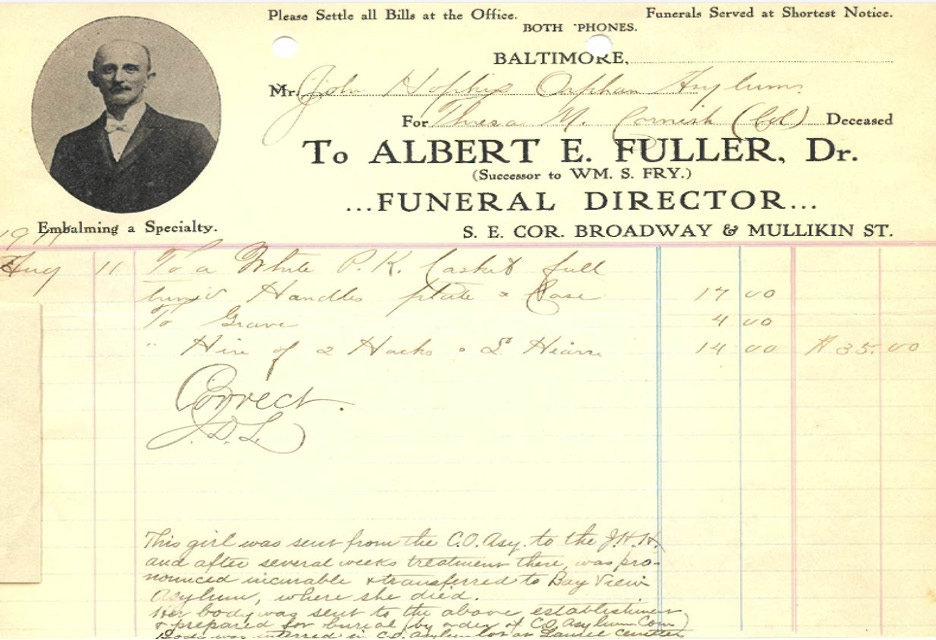 Please Settle all Bills at the Office.
Funerals Served at Shortest Notice.
BOTH 'PHONES.
BALTIMORE,
Mr. John Hopkins Orphan Asylum
For Theresa M. Cornish (Col) Deceased
To ALBERT E. FULLER, Dr.
(Successor to WM. S. FRY.)
...FUNERAL DIRECTOR...
Embalming a Specialty.
S. E. COR. BROADWAY & MULLIKIN ST.
Aug 11 To a White P. K. Casket full
Handles plate & Case 17 00
To Grave 4 00
" Hire of 2 Hacks & Hearse 14 00 $35.00
Correct.
J.D.L.
This girl was sent from the C.O. Asy. to the J.H.H.
and after several weeks treatment there, was pro-
nounced incurable & transferred to Bay View
Asylum, where she died.
Her body was sent to the above establishment
& prepared for burial (by order of C.O. Asylum Com)
Body was interred in C.O. Asylum lot at Laurel Cemetery